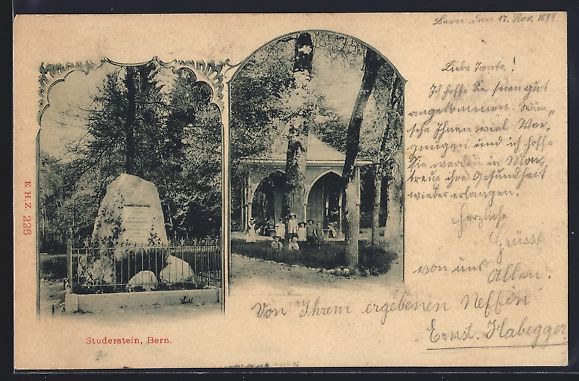 Bern den 17. Nov. 1899
Liebe Tante!
Ich hoffe Sie seien gut
angekommen. Wün-
sche Ihnen viel Ver-
gnügen und ich hoffe
Sie werden in Mon-
treux ihre Gesundheit
wieder erlangen.
Herzliche
Grüsse
von uns Allen.
Von Ihrem ergebenen Neffen
Ernst Habegger
E. H. Z. 226
Studerstein, Bern.